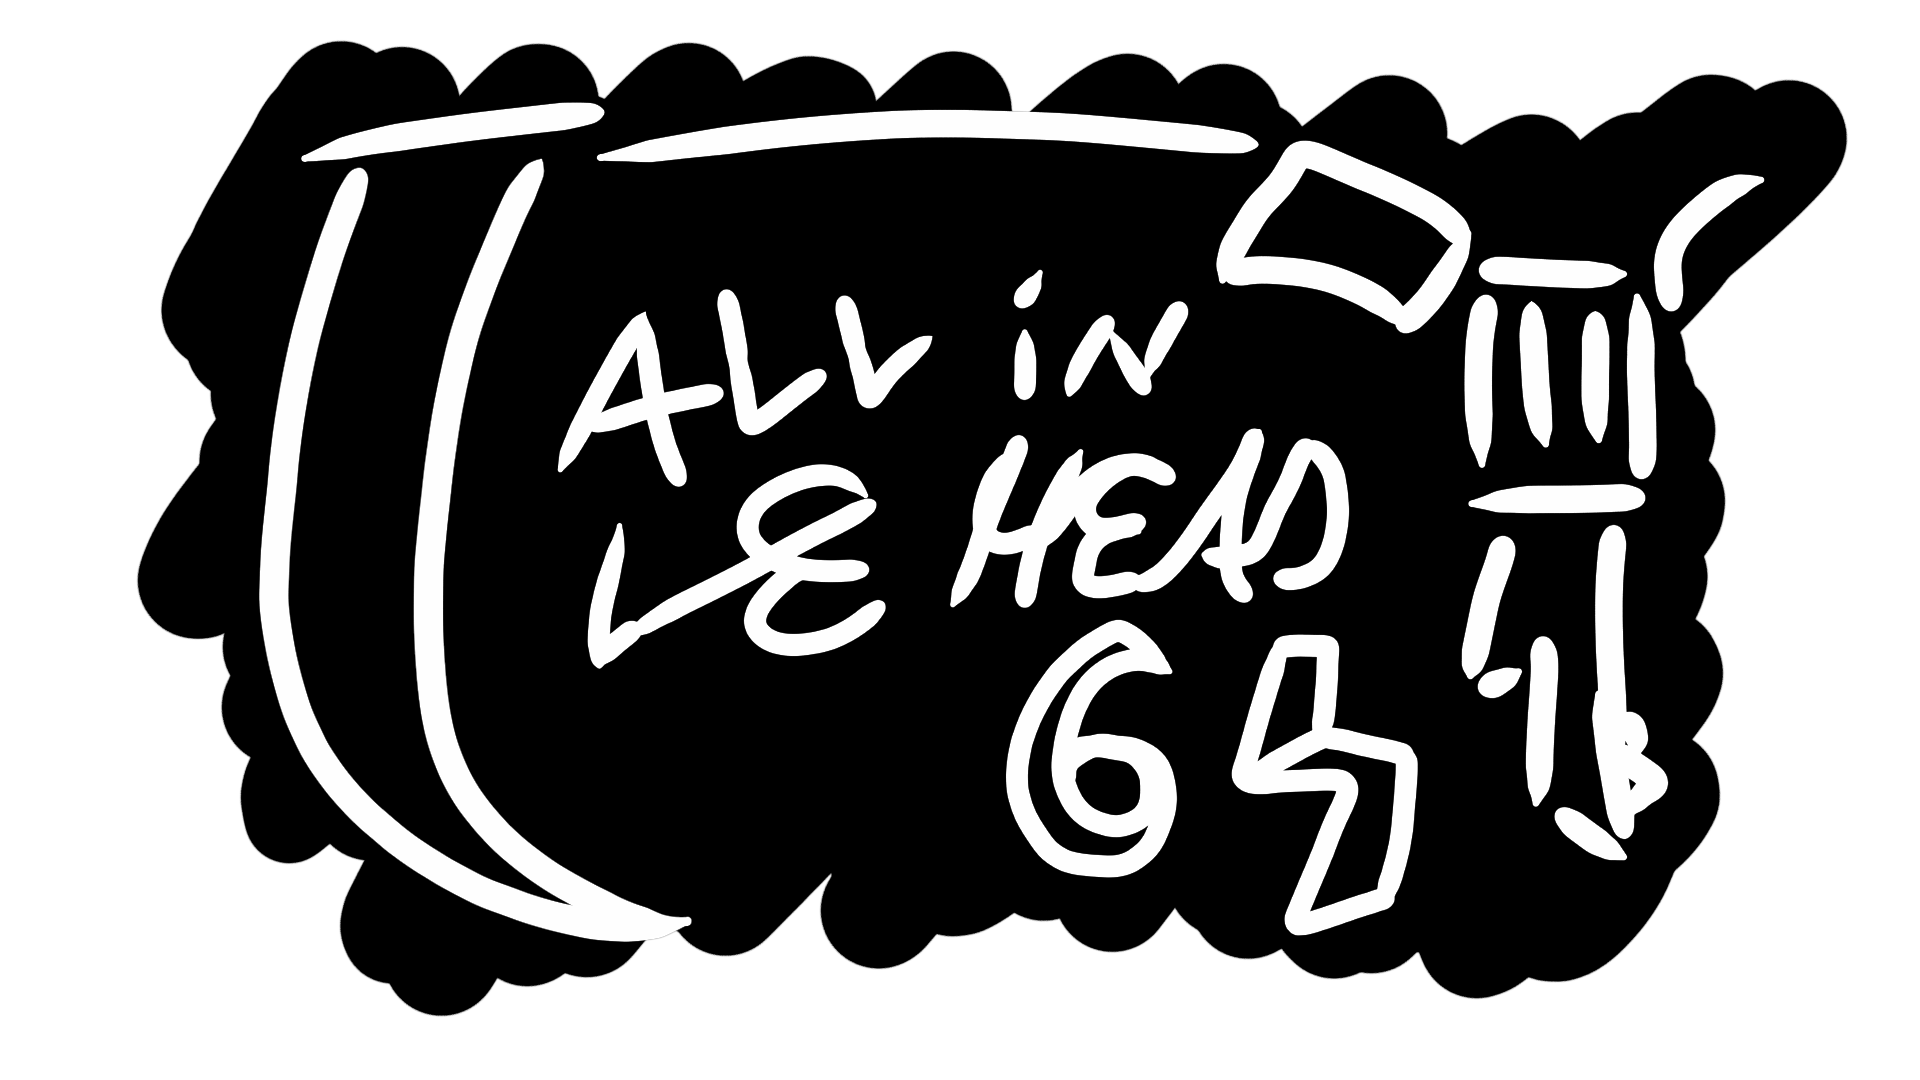 ALL iN
LE HEAD
64